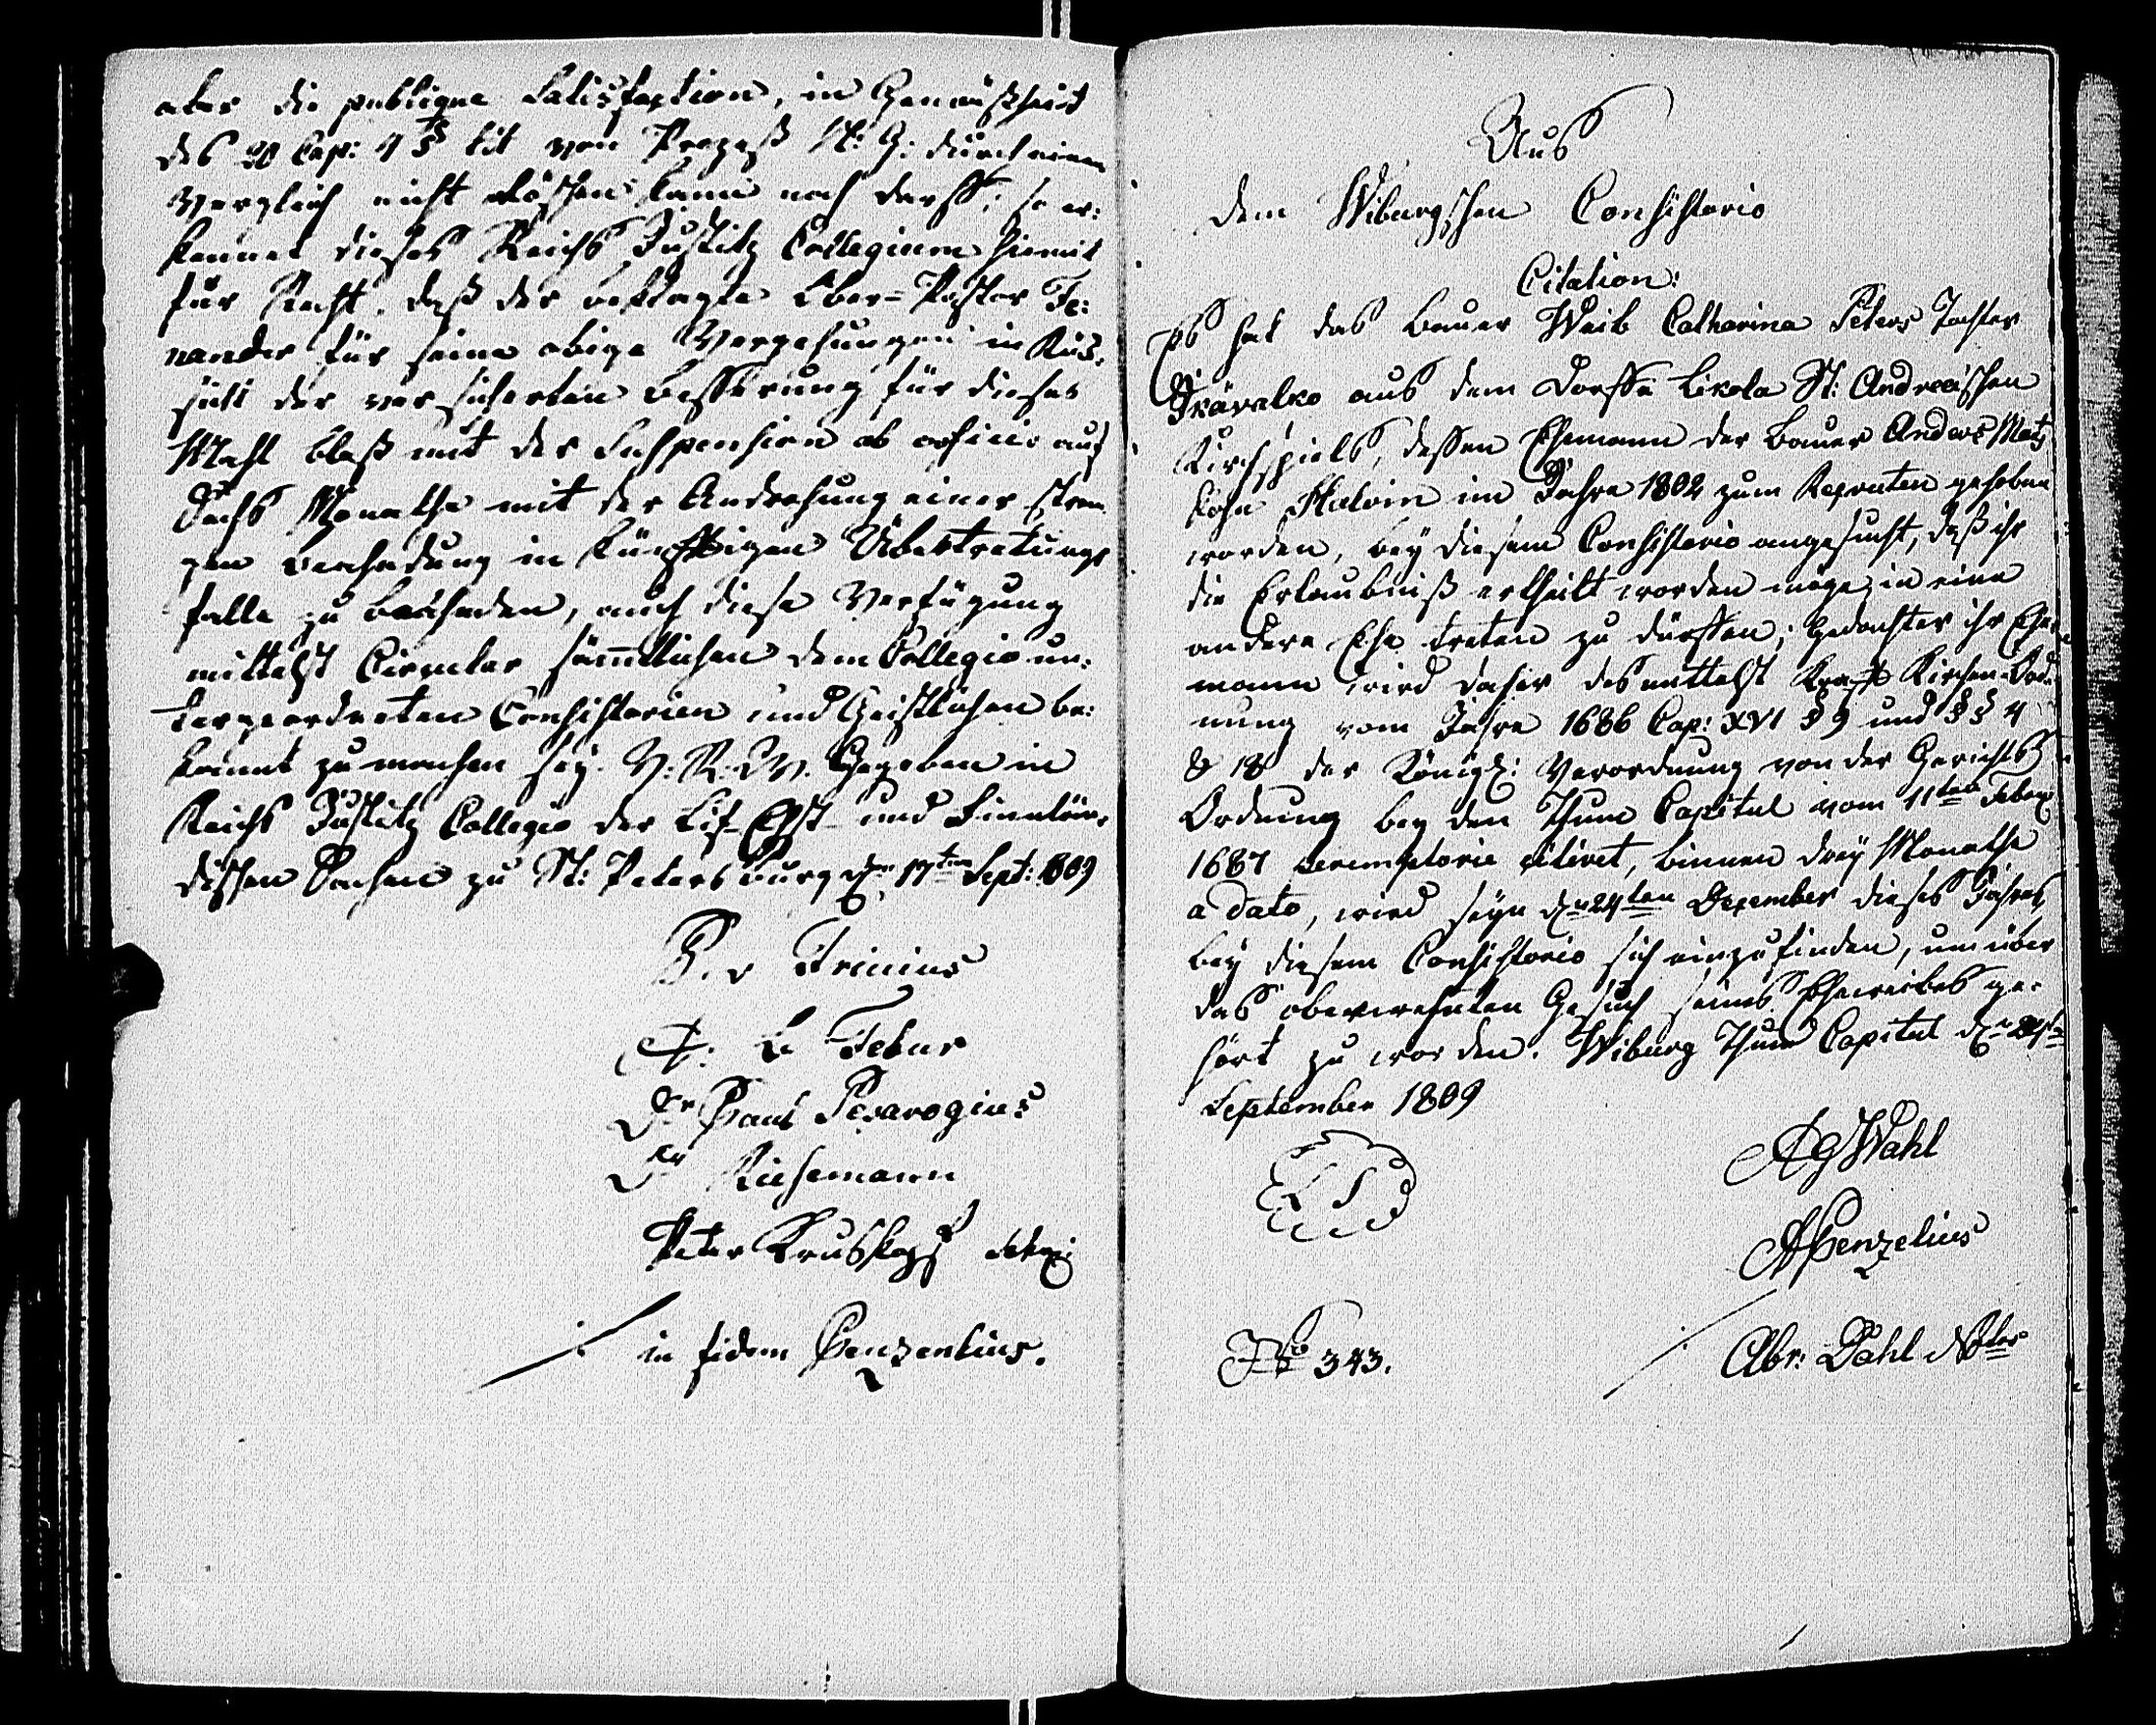 aber die publique Satisfaction, in Gemäßheit
des 20 Cap: 4 § tit vom Prozeß St: G: durch einen
Vergleich nicht löschen kann noch darff; so er:
kennet dieses Reichs Justitz Collegium hiemit
für Recht, daß der beklagte Ober=Pastor Fe:
nander für seine obige Vergehungen in Rück.
sicht der versicherten Besserung für dieses
Mahl bloß mit der Suspension ab officio auf
Sechs Monathe mit der Androhung einer stren
gen Beahndung in künfftigen Übertretungs
falle zu beahnden, auch diese Verfügung
mittelst Circular sämtlichen dem Collegio un:
tergeordneten Consistorien und Geistlichen be:
kannt zu machen sey. V: R: W. Gegeben in
Reichs Justitz Collegio der Lif-Ehst- und Finnlän,
dischen Sachen zu St: Petersburg den 17ten Sept: 1809
v Trinius
F: Le Febur
Dr Paul Pesarogius
Dr Riesemann
Peter Kruskopf
in fidem Penzenlius.
Aus
dem Wiburgschen Consistorio
Citation:
Es hat das Bauer Weib Catharina Peters Tochter
Ikävalko aus dem Dorffe Likola St: Andreeischen
Kirchspiels, dessen Ehemann der Bauer Anders Matz
sohn Holvin im Jahre 1802 zum Recruten gehoben
worden, bey diesem Consistorio angesucht, daß ihr
die Erlaubniß ertheilt worden möge, in eine
andere Ehe treten zu dürffen; Gedachter ihr Ehe
mann wird daher desmittelst Krafft Kirchen-Ord.
nung vom Jahre 1686 Cap: XVI § 9 und §§ 4
& 18 der Königl: Verordnung von der Gerichts
Ordnung bey den Thum Capitul vom 11ten Febr
1687 peremptorie citiret, binnen drey Monathe
a dato, wird seyn d. 24ten December dieses Jahres,
bey diesem Consistorio sich einzufinden, um über
das oberwehnten Gesuch seines Eheweibes ge:
hört zu worden. Wiburg Thum Capitul d. 24ten
September 1809
A G Wahl
L S
A Penzelius
No 343.
Abr: Dahl Notar